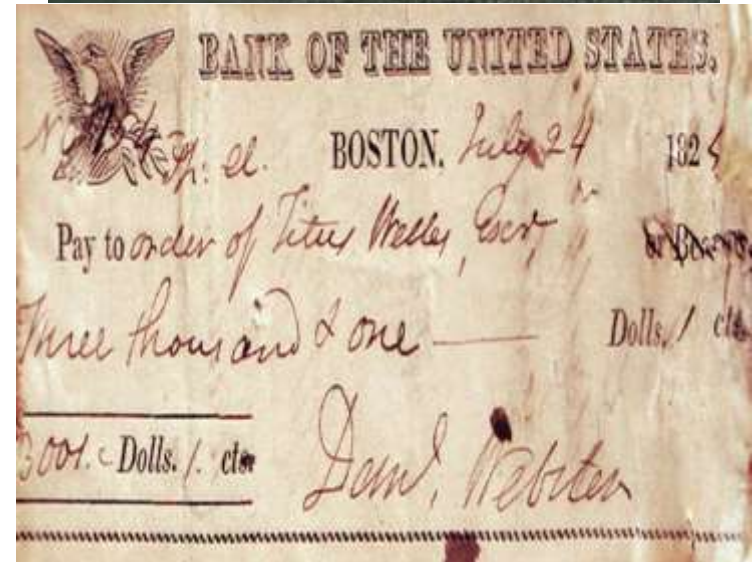 BANK OF THE UNITED STATES.
BOSTON, July 24 182
Pay to order of Titus Welles, Esqr or
Three thousand & one — Dolls. 1 cts.
3001. Dolls. 1. cts.
Danl. Webster